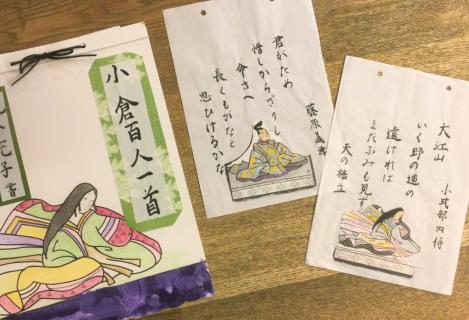 小倉百人一首
子書
君がため
惜しからざりし
命さへ
長くもがなと
思ひけるかな
藤原義孝
大江山
いく野の道の
遠ければ
まだふみも見ず
天の橋立
小式部内侍